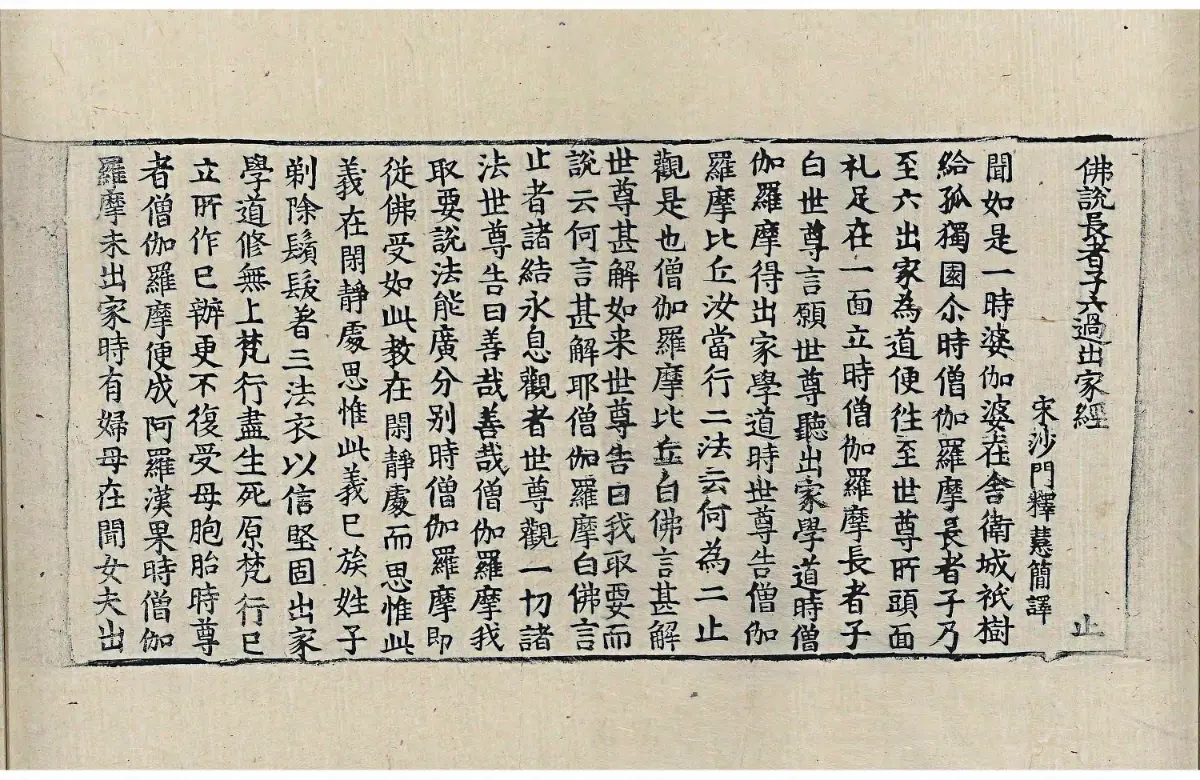 佛說長者子六過出家經
宋沙門釋慧簡譯
止
聞如是一時婆伽婆在舍衛城祇樹
給孤獨園尒時僧伽羅摩長者子乃
至六出家為道便往至世尊所頭面
礼足在一面立時僧伽羅摩長者子
白世尊言願世尊聽出家學道時僧
伽羅摩得出家學道時世尊告僧伽
羅摩比丘汝當行二法云何為二止
觀是也僧伽羅摩比丘白佛言甚解
世尊甚解如来世尊告曰我取要而
說云何言甚解耶僧伽羅摩白佛言
止者諸結永息觀者世尊觀一切諸
法世尊告曰善哉善哉僧伽羅摩我
取要說法能廣分別時僧伽羅摩即
從佛受如此教在閑靜處而思惟此
義在閑靜處思惟此義已族姓子
剃除鬚髮著三法衣以信堅固出家
學道修無上梵行盡生死原梵行已
立所作已辦更不復受母胞胎時尊
者僧伽羅摩便成阿羅漢果時僧伽
羅摩未出家時有婦母在聞女夫出